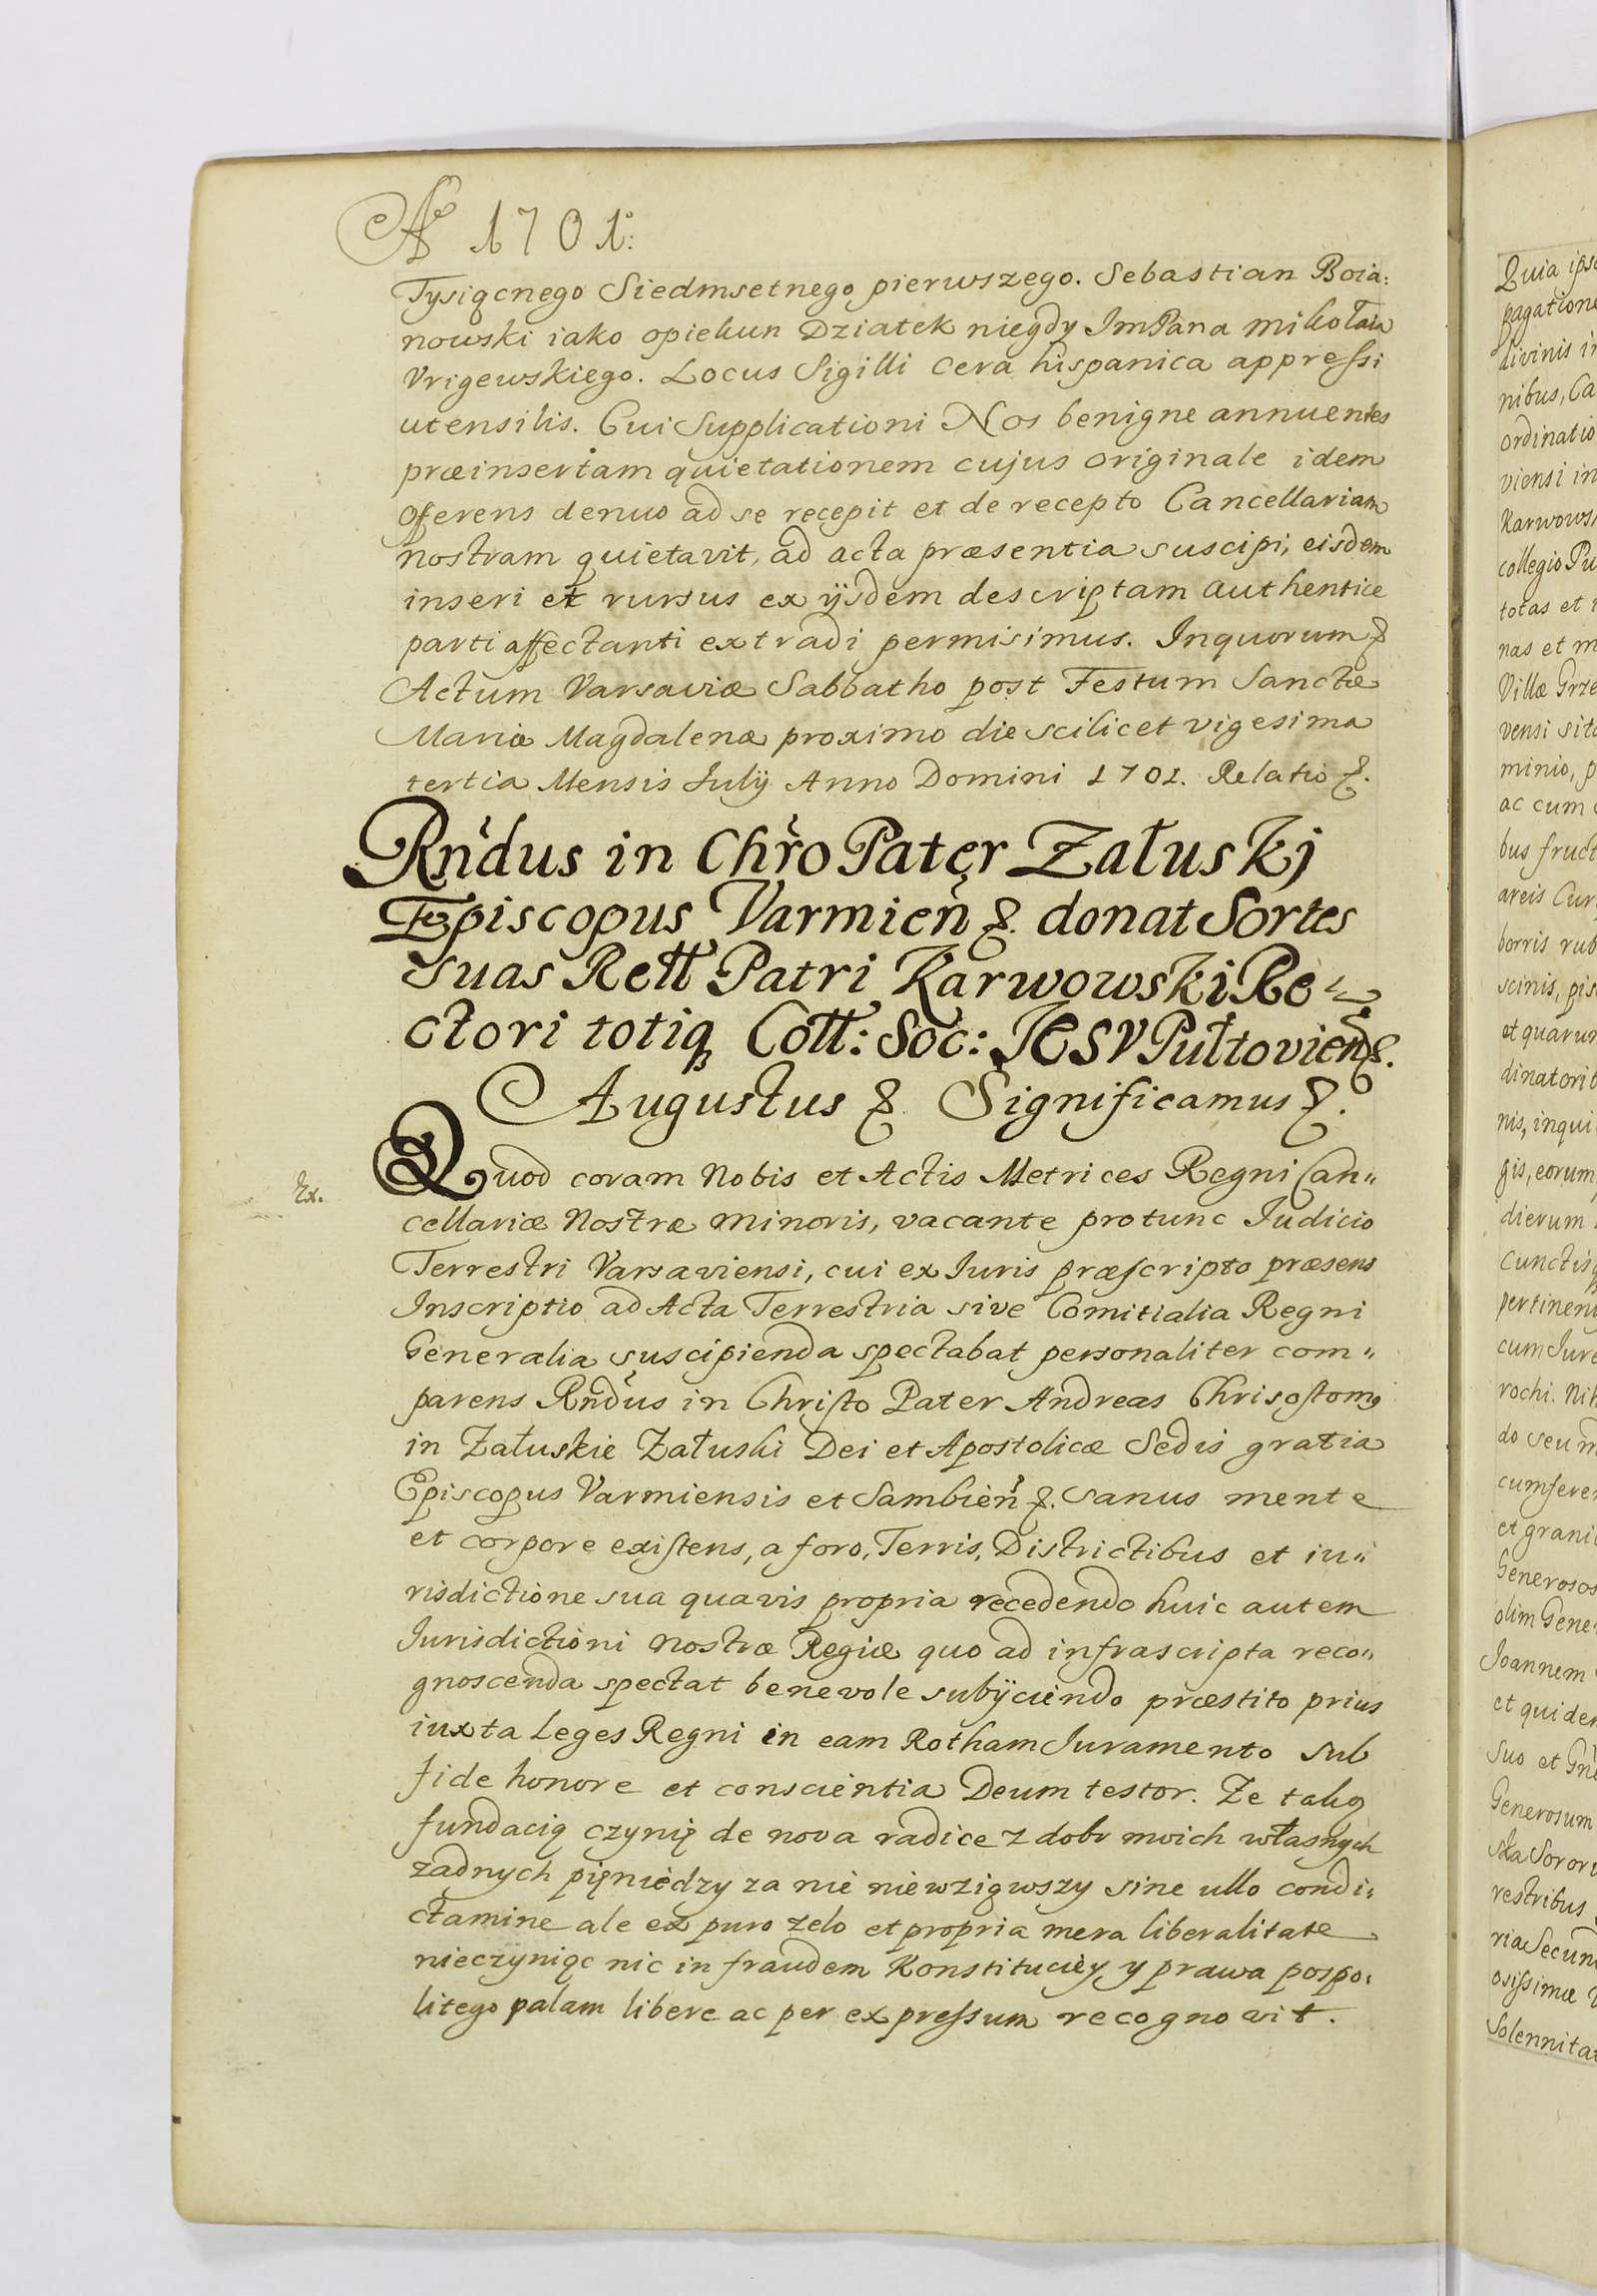 Aº 1701º:
Tysiącnego Siedmsetnego pierwszego. Sebastian Boia:
nowski iako opiekun Dziatek niegdy ImPana mikołaia
Vrigewskiego. Locus Sigilli cera hispanica appressi
utensilis. Cui Supplicationi Nos benigne annuentes
præinsertam quietationem cujus originale idem
offerens denuo ad se recepit et de recepto Cancellariam
nostram quietavit, ad acta præsentia suscipi, eisdem
inseri et rursus ex ijsdem descriptam authentice
parti affectanti extradi permisimus. Inquorum &
Actum Varsaviæ Sabbatho post Festum Sanctæ
Mariæ Magdalenæ proximo die scilicet vigesima
tertia Mensis Julij Anno Domini 1701. Relatio &.
Rndus in Chro Pater Załuskj
Episcopus Varmien &. donat Sortes
suas Rell Patri Karwowski Re
ctori totiq Coll: Soc: JESV Pułtovien &.
Augustus &. Significamus &.
Ex.
Quod coram Nobis et Actis Metrices Regni Can„
cellariæ Nostræ minoris, vacante protunc Judicio
Terrestri Varsaviensi, cui ex Iuris præscripto præsens
Inscriptio ad Acta Terrestria sive Comitialia Regni
Generalia suscipienda spectabat personaliter com„
parens Rndus in Christo Pater Andreas Chrisostomg
in Załuskie Załuski Dei et Apostolicæ Sedis gratia
Episcopus Varmiensis et Sambien &. sanus mente
et corpore existens, a foro, Terris, Districtibus et iu„
risdictione sua quavis propria recedendo huic autem
Jurisdictioni nostræ Regiæ quo ad infrascripta reco„
gnoscenda spectat benevole subijciendo præstito prius
iuxta Leges Regni in eam Rotham Juramento sub
fide honore et conscientia Deum testor. Ze taką
fundacią czynię de nova radice z dobr moich własnych
zadnych pięniedzy za nie niewziąwszy sine ullo condi„
ctamine ale ex puro zelo et propria mera liberalitate
nieczyniąc nic in fraudem Konstituciey y prawa pospo„
litego palam libere ac per expressum recognovit.
Quia ips
pagatione
divinis in
nibus, Ca
ordinatio
viensi in
Karwows
collegio Pu
totas et
nas et m
Villæ Grze
vensi sit
minio, p
ac cum
bus fruct
areis Cur
borris rub
scinis, pis
et quarun
dinatorib
nis, inqui
gis, eorum
dierum
cunctisq
pertinen
cum Jure
rochi. Nih
do seu m
cumferen
et grani
Generosos
olim Gene
Joannem
et quiden
suo et Gn
Generosum
ska Soror
restribus
ria Secun
osissimæ
Solennita